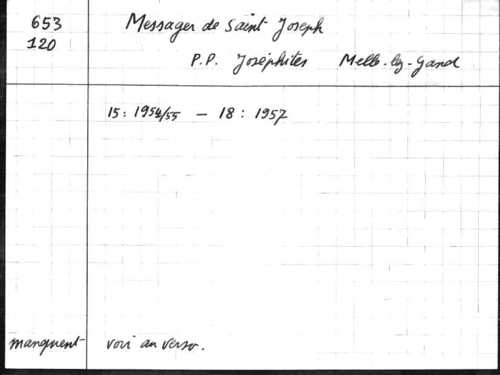 653
120
Messager de Saint Joseph
P.P. Joséphites Melle-lez-Gand
15: 1954/55 – 18: 1957
manquent voir au verso.